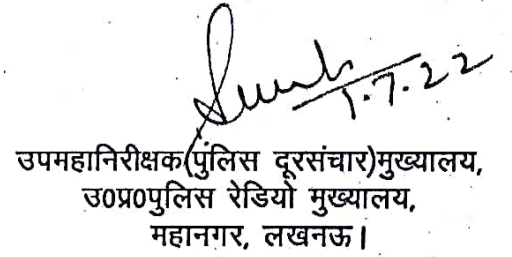 1.7.22
उपमहानिरीक्षक(पुलिस दूरसंचार)मुख्यालय,
उ०प्र०पुलिस रेडियो मुख्यालय,
महानगर, लखनऊ।